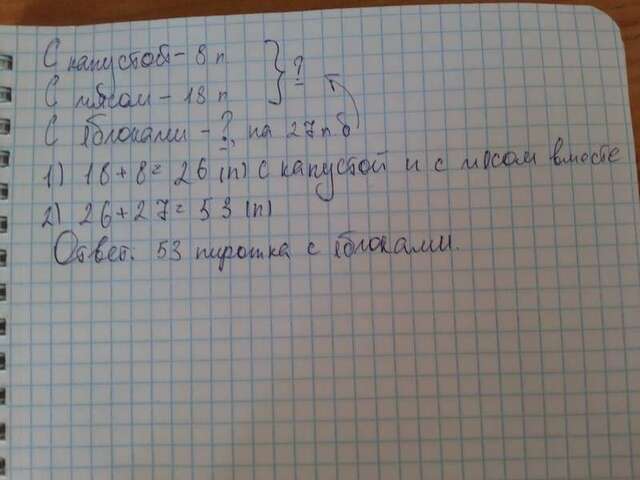 С капустой - 8 п } ?
С мясом - 18 п
С яблоками - ?, на 27 п б
1) 18 + 8 = 26 (п) с капустой и с мясом вместе
2) 26 + 27 = 53 (п)
Ответ: 53 пирожка с яблоками.